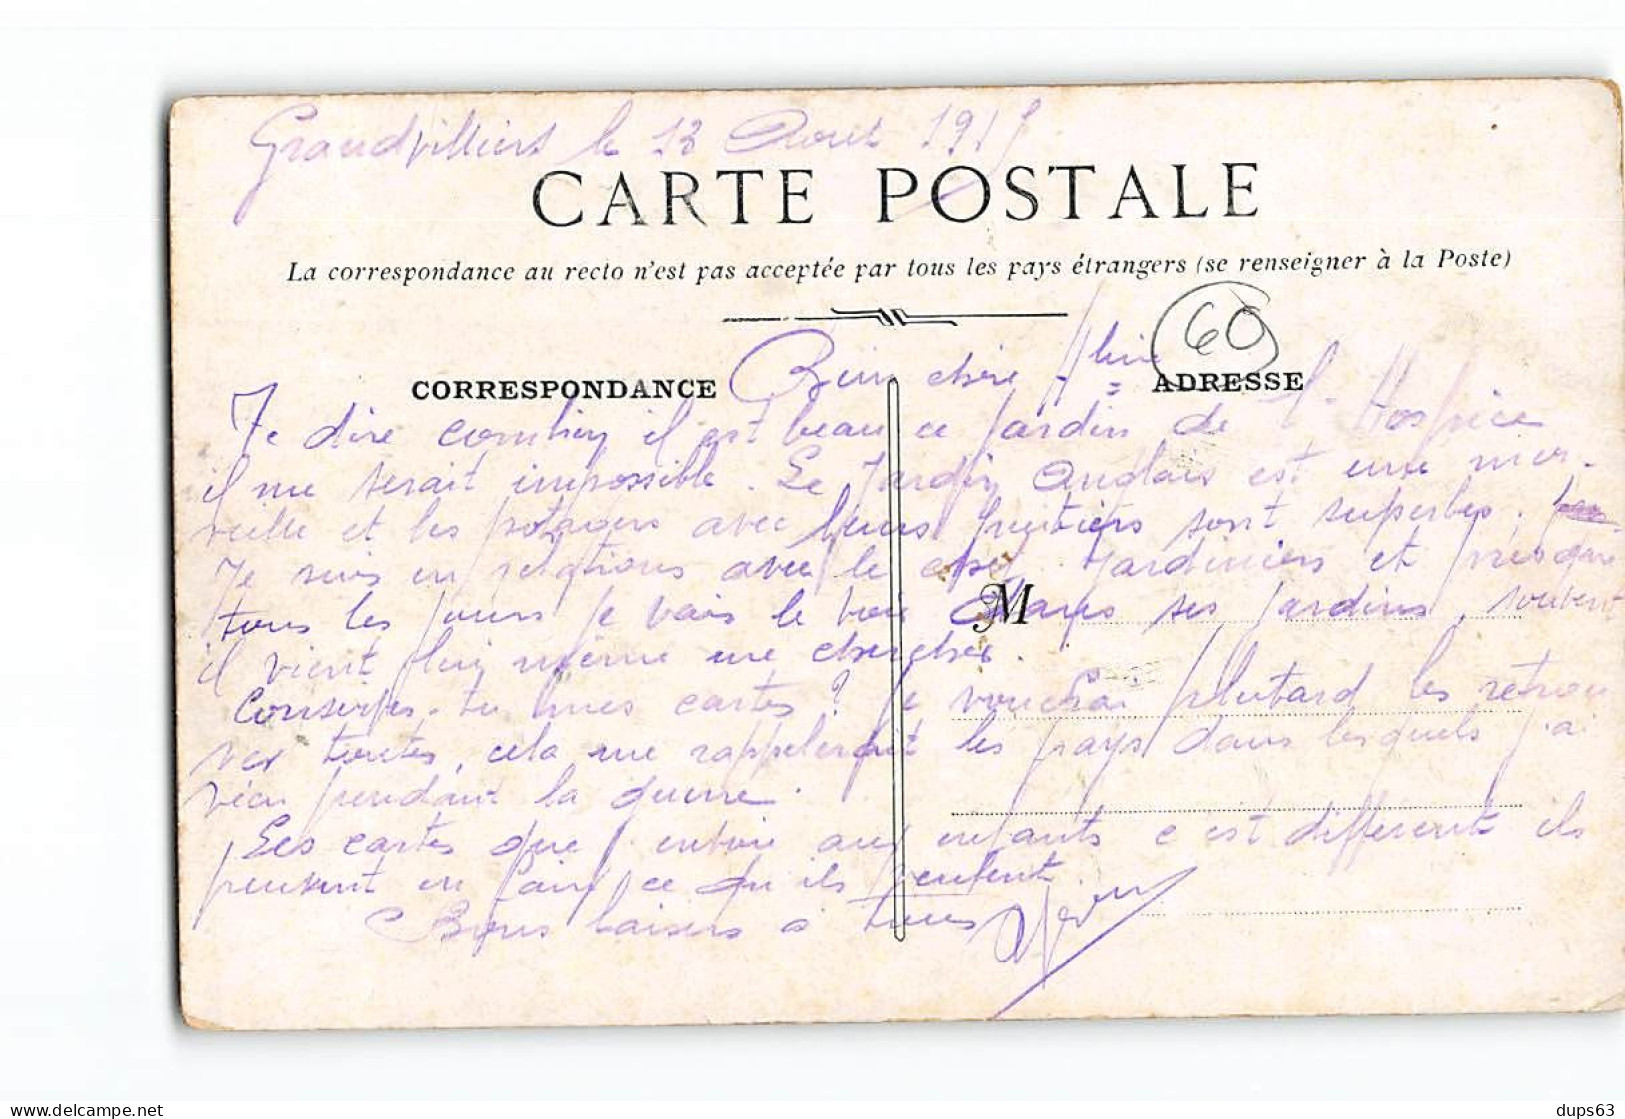 Grandvilliers le 13 Aout 191
CARTE POSTALE
La correspondance au recto n'est pas acceptée par tous les pays étrangers (se renseigner à la Poste)
60
Bien chère Aline
CORRESPONDANCE
ADRESSE
Te dire combien il est beau ce jardin de l'Hospice
il me serait impossible. Le jardin anglais est une mer-
veille et les potagers avec leurs fruitiers sont superbes.
Je suis en relations avec le chef jardiniers et presque
M
tous les jours je vais le voir dans ses jardins, souvent
il vient lui même me chercher.
Conserves-tu mes cartes? je voudrai plutard les retrou
ver toutes, cela me rappelerait les pays dans lesquels j'ai
vécu pendant la guerre.
Les cartes que j'envoie aux enfants c'est different ils
peuvent en faire ce qu'ils veulent
Bons baisers à tous
dups63